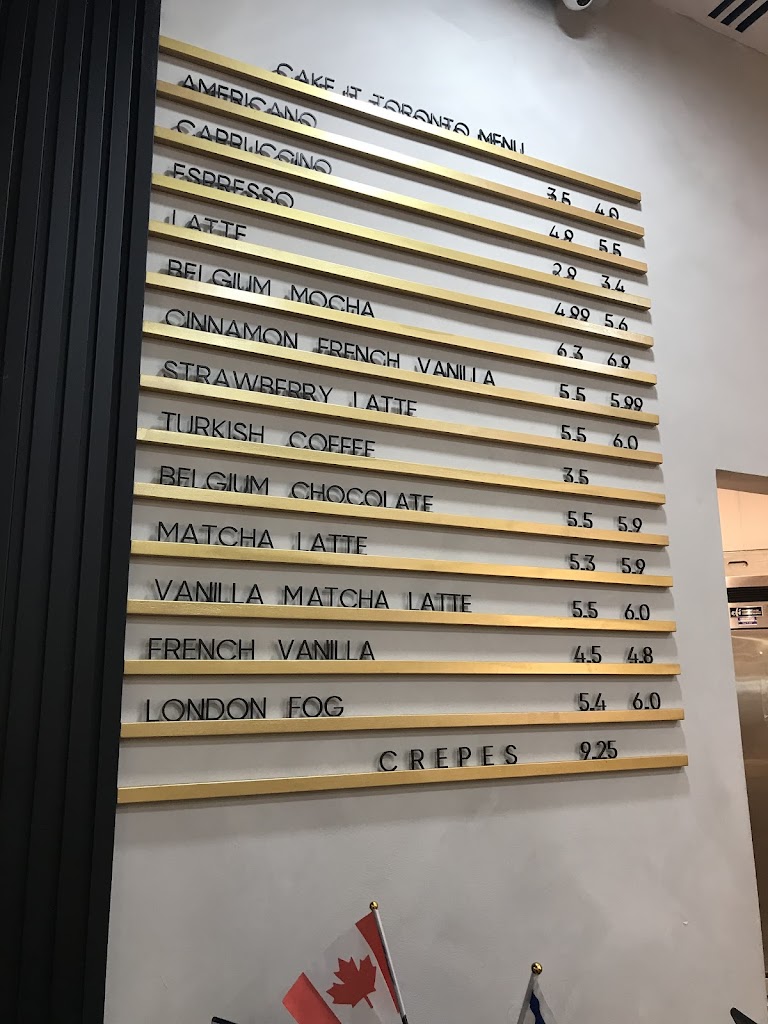 CAKE IT TORONTO MENU
AMERICANO 3.5 4.0
CAPPUCCINO 4.9 5.5
ESPRESSO 2.9 3.4
LATTE 4.99 5.6
BELGIUM MOCHA 6.3 6.9
CINNAMON FRENCH VANILLA 5.5 5.99
STRAWBERRY LATTE 5.5 6.0
TURKISH COFFEE 3.5
BELGIUM CHOCOLATE 5.5 5.9
MATCHA LATTE 5.3 5.9
VANILLA MATCHA LATTE 5.5 6.0
FRENCH VANILLA 4.5 4.8
LONDON FOG 5.4 6.0
CREPES 9.25